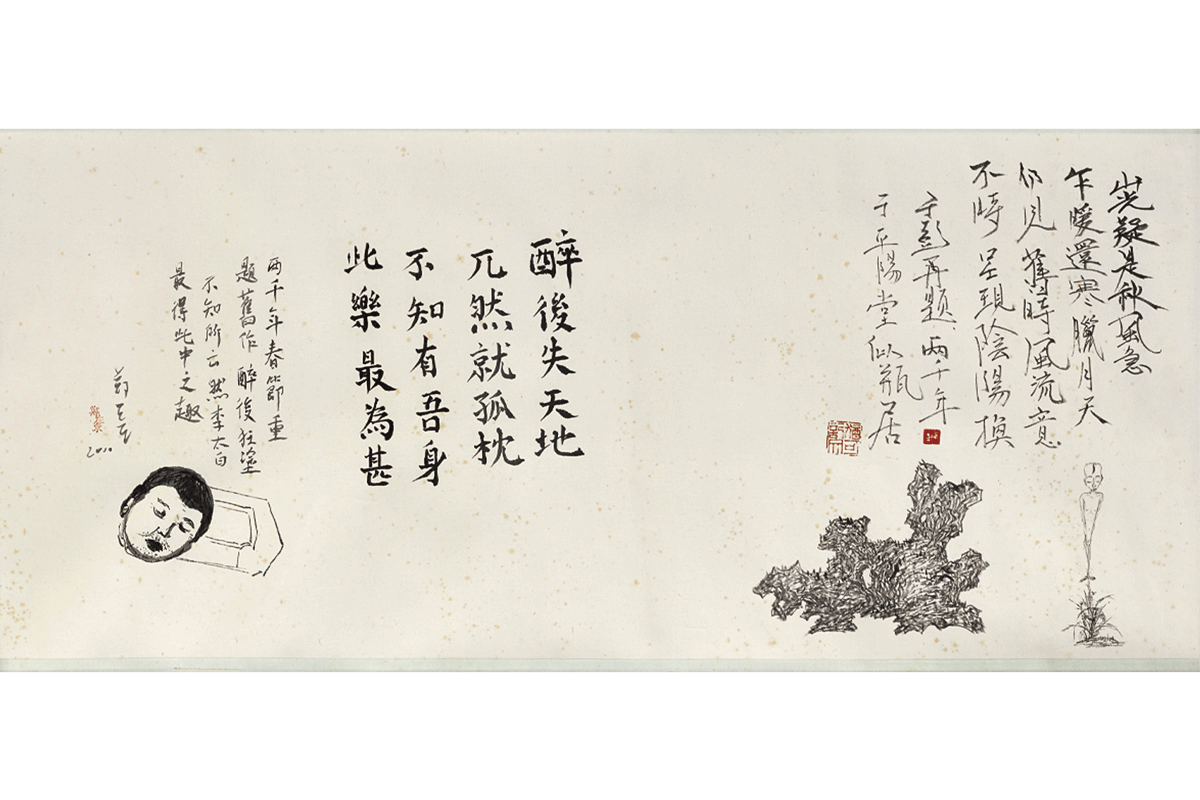 光疑是秋風急
乍暖還寒臘月天
仍見舊時風流意
不時呈現陰陽換
于彭再題 兩千年
于平陽堂似瓶居
醉後失天地
兀然就孤枕
不知有吾身
此樂最為甚
兩千年春節重
題舊作醉後狂塗
不知所云然李太白
最得此中之趣
2000